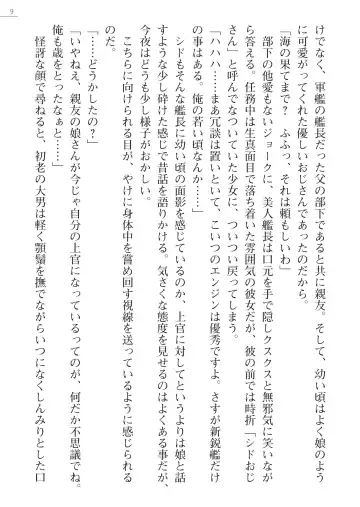 9
けでなく、軍艦の艦長だった父の部下であると共に親友。そして、幼い頃はよく娘のよう
に可愛がってくれた優しいおじさんであったのだから。
「海の果てまで？　ふふっ、それは頼もしいわ」
部下の他愛もないジョークに、美人艦長は口元を手で隠しクスクスと無邪気に笑いなが
ら答える。任務中は生真面目で落ち着いた雰囲気の彼女だが、彼の前では時折「シドおじ
さん」と呼んでなついていた少女に、ついつい戻ってしまう。
「ハハハ……まあ冗談は置いといて、こいつのエンジンは優秀ですよ。さすが新鋭艦だけ
の事はある。俺の若い頃なんか……」
シドもそんな艦長に幼い頃の面影を感じているのか、上官に対してというよりは娘と話
すような少し砕けた感じで昔話を語りかける。気さくな態度を見せるのはよくある事だが、
今夜はどうも少し様子がおかしい。
こちらに向けられる目が、やけに身体中を嘗め回す視線を送っているように感じられる
のだ。
「……どうかしたの？」
「いやねえ、親友の娘さんが今じゃ自分の上官になっているってのが、何だか不思議でね。
俺も歳をとるなぁと……」
怪訝な顔で尋ねると、初老の大男は軽く顎鬚を撫でながらいつになくしんみりとした口